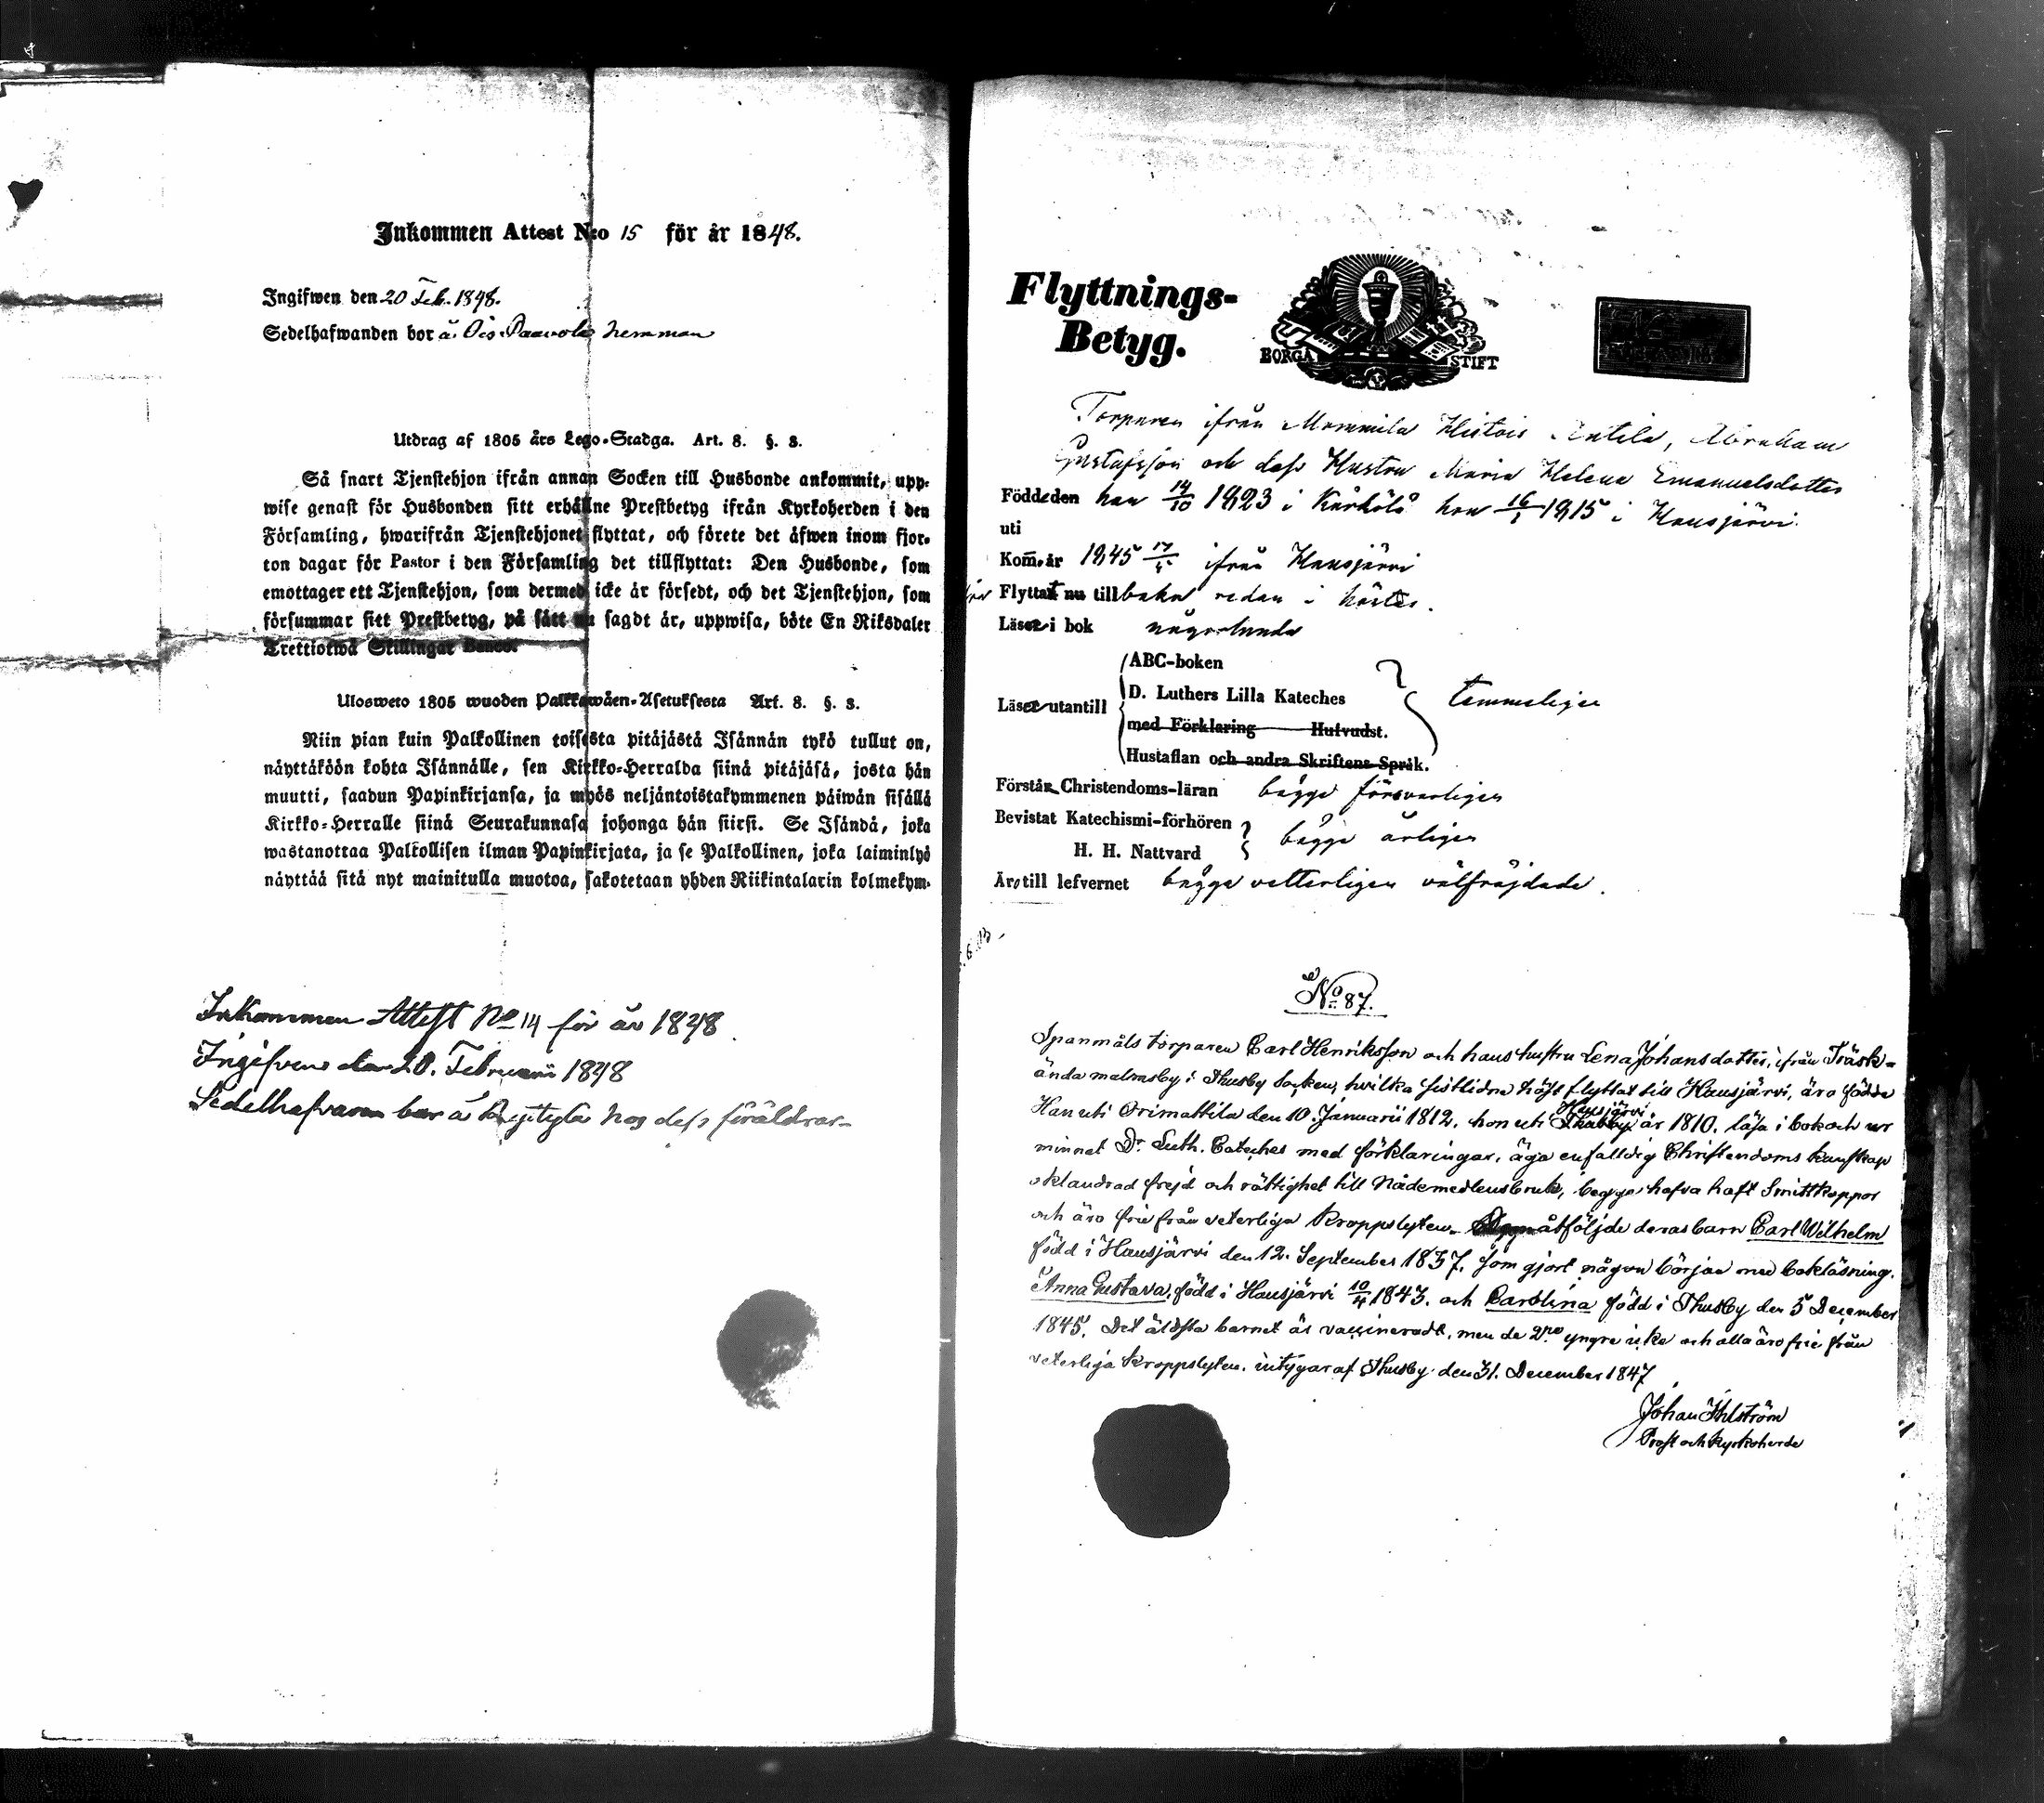 Inkommen Attest N:o 15 för år 1848.
Ingifwen den 20 Feb. 1848.
Sedelhafwanden bor å Ois Paavola hemman
Utdrag af 1805 års Lego-Stadga. Art. 8. §. 3.
Så snart Tjenstehjon ifrån annan Socken till Husbonde ankommit, upp-
wise genast för Husbonden sitt erhållne Prestbetyg ifrån Kyrkoherden i den
Församling, hwarifrån Tjenstehjonet flyttat, och förete det äfwen inom fjor-
ton dagar för Pastor i den Församling det tillflyttat: Den Husbonde, som
emottager ett Tjenstehjon, som dermed icke är försedt, och det Tjenstehjon, som
försummar sitt Prestbetyg, på sätt nu sagdt är, uppwisa, böte En Riksdaler
Trettiotwå Skillingar Banco.
Ulosweto 1805 wuoden Palkkawäen-Asetuksesta Art. 8. §. 3.
Niin pian kuin Palkollinen toisesta pitäjästä Isännän tykö tullut on,
näyttäköön kohta Isännälle, sen Kirkko-Herralda siinä pitäjäsä, josta hän
muutti, saadun Papinkirjansa, ja myös neljäntoistakymmenen päiwän sisällä
Kirkko-Herralle siinä Seurakunnasa johonga hän siirsi. Se Isändä, joka
wastanottaa Palkollisen ilman Papinkirjata, ja se Palkollinen, joka laiminlyö
näyttää sitä nyt mainitulla muotoa, sakotetaan yhden Riikintalarin kolmekym-
Inkommen Attest No 14 för år 1848
Ingifven den 20. Februarii 1848
Sedelhafvaren bor å hos dess föräldrar
Flyttnings-
Betyg.
BORGÅ STIFT
Torparen ifrån Mommila Hietois Antila, Abraham
Gustafsson och dess Hustru Maria Helena Emanuelsdotter
Födde den han 14/10 1823 i Kärkölä hon 16/1 1815 i Hausjärvi
uti
Kom år 1845 ifrån Hausjärvi
Flyttat nu till baka redan i höstas.
Läser i bok någorlunda
ABC-boken
D. Luthers Lilla Kateches
Läser utantill temmeligen
med Förklaring Hufvudst.
Hustaflan och andra Skriftens Språk.
Förstår Christendoms-läran bägge försvarligen
Bevistat Katechismi-förhören
H. H. Nattvard bägge årligen
Är till lefvernet bägge vetterligen välfräjdade.
No 87.
Spanmåls torparen Carl Henriksson och hans hustru Lena Johansdotter, ifrån Träsk-
ända malmsby i Thusby Socken, hvilka sistlidne höst flyttat till Hausjärvi, äro födde
Han uti Orimattila den 10. Januarii 1812. hon uti Hausjärvi år 1810. läsa i bok och ur
minnet Dr. Luth. Cateches med förklaringar, äga enfalldig Christendoms kunskap
oklandrad frejd och rättighet till Nådemedlens bruk, begge hafva haft Smittkoppor
och äro frie från veterliga kroppslyten. åtföljde deras barn Carl Wilhelm
född i Hausjärvi den 12. September 1837. som gjort någon början med bokläsning.
Anna Gustava, född i Hausjärvi 10/4 1843. och Carolina född i Thusby den 5 December
1845. Det äldsta barnet är vaccineradt, men de 2ne yngre icke och alla äro frie från
veterliga kroppslyten. intygar af Thusby den 31. December 1847
Johan Ahlström
Prost och kyrkoherde